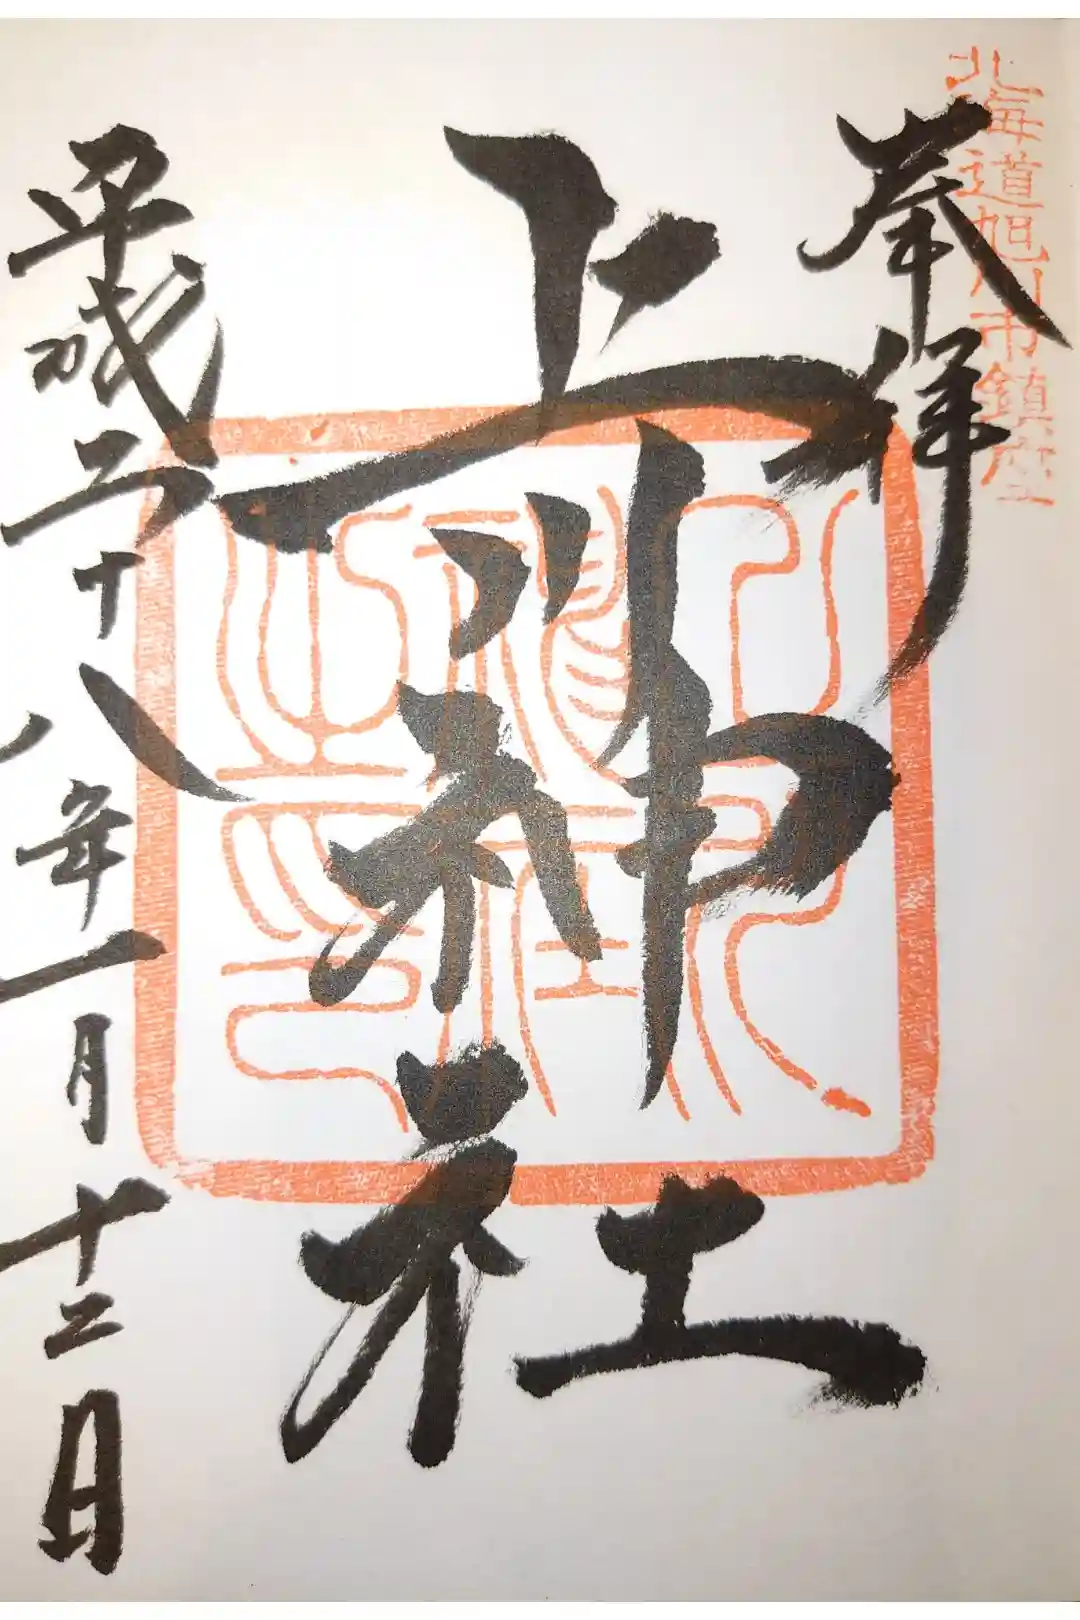 北海道旭川市鎮座
奉拝
上川神社
上川神社之印
平成二十八年一月十二日